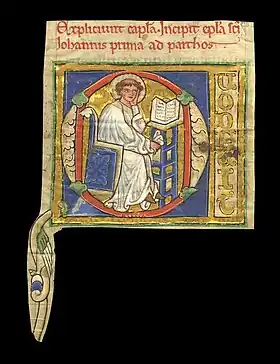 Expliciunt capl'a. Incipit epl'a sc̄i
Johannis prima ad parthos.
Q
UOD FUIT